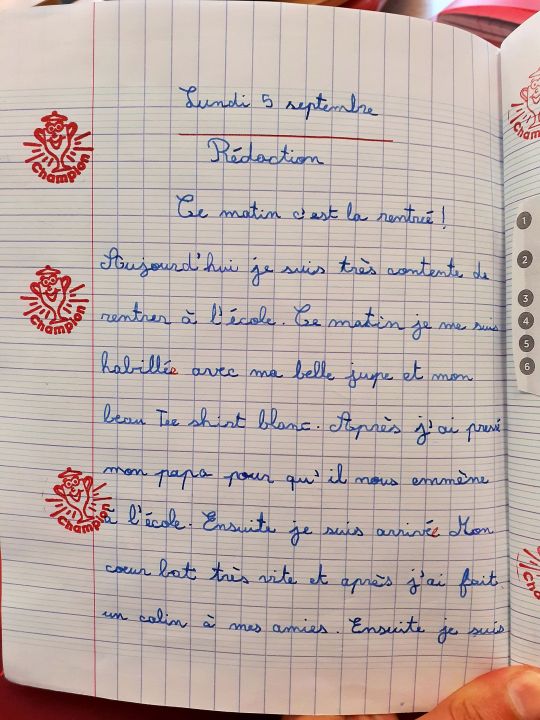 Lundi 5 septembre
Rédaction
Ce matin c'est la rentrée !
Aujourd'hui je suis très contente de
rentrer à l'école. Ce matin je me suis
habillée avec ma belle jupe et mon
beau Tee shirt blanc. Après j'ai pressé
mon papa pour qu'il nous emmène
à l'école. Ensuite je suis arrivée Mon
cœur bat très vite et après j'ai fait
un calin à mes amies. Ensuite je suis
Champion
Champion
Champion
1
2
3
4
5
6